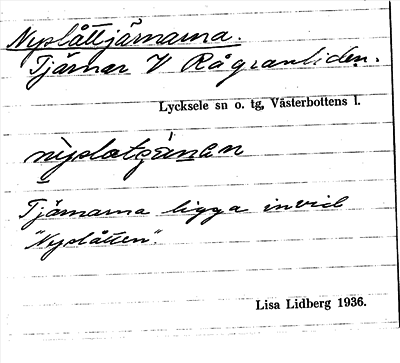 Nyslåttjärnarna.
Tjärnar V Rågranliden.
Lycksele sn o. tg, Västerbottens l.
Tjärnarna ligga invid
"Nyslåtten".
Lisa Lidberg 1936.